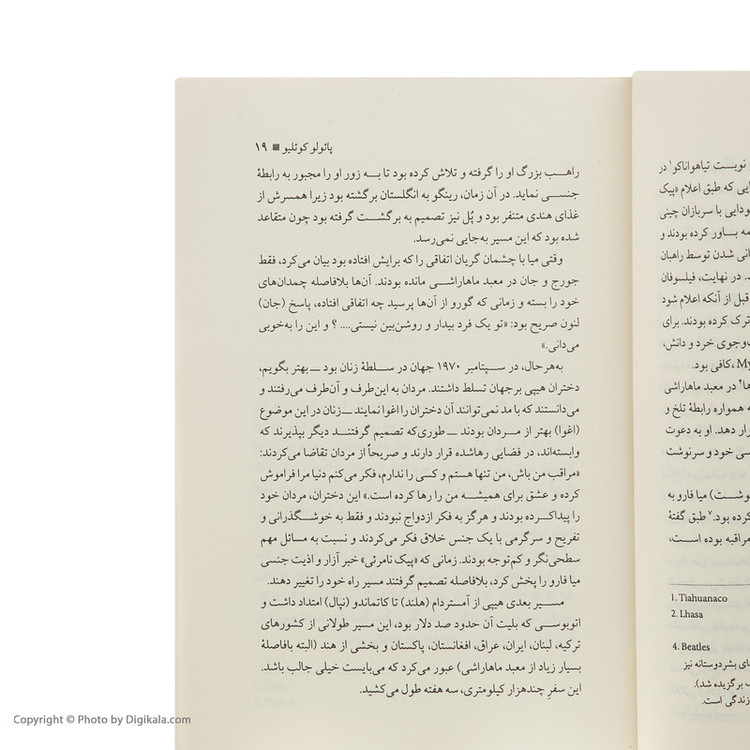 پائولو کوئلیو ■ ۱۹
راهب بزرگ او را گرفته و تلاش کرده بود تا به زور او را مجبور به رابطهٔ
جنسی نماید. در آن زمان، رینگو به انگلستان برگشته بود زیرا همسرش از
غذای هندی متنفر بود و پُل نیز تصمیم به برگشت گرفته بود چون متقاعد
شده بود که این مسیر به‌جایی نمی‌رسد.
وقتی میا با چشمان گریان اتفاقی را که برایش افتاده بود بیان می‌کرد، فقط
جورج و جان در معبد ماهاراشی مانده بودند. آن‌ها بلافاصله چمدان‌های
خود را بسته و زمانی که گورو از آن‌ها پرسید چه اتفاقی افتاده، پاسخ (جان)
لنون صریح بود: «تو یک فرد بیدار و روشن‌بین نیستی.... ؟ و این را به‌خوبی
می‌دانی.»
به‌هرحال، در سپتامبر ۱۹۷۰ جهان در سلطهٔ زنان بود ـ بهتر بگویم،
دختران هیپی برجهان تسلط داشتند. مردان به این‌طرف و آن‌طرف می‌رفتند و
می‌دانستند که با مد نمی‌توانند آن دختران را اغوا نمایند ـ زنان در این موضوع
(اغوا) بهتر از مردان بودند ـ طوری‌که تصمیم گرفتند دیگر بپذیرند که
وابسته‌اند، در فضایی رهاشده قرار دارند و صریحاً از مردان تقاضا می‌کردند:
«مراقب من باش، من تنها هستم و کسی را ندارم، فکر می‌کنم دنیا مرا فراموش
کرده و عشق برای همیشه من را رها کرده است.» این دختران، مردان خود
را پیدا کرده بودند و هرگز به فکر ازدواج نبودند و فقط به خوشگذرانی و
تفریح و سرگرمی با یک جنس خلاق فکر می‌کردند و نسبت به مسائل مهم
سطحی‌نگر و کم‌توجه بودند. زمانی که «پیک نامرئی» خبر آزار و اذیت جنسی
میا فارو را پخش کرد، بلافاصله تصمیم گرفتند مسیر راه خود را تغییر دهند.
مسیر بعدی هیپی از آمستردام (هلند) تا کاتماندو (نپال) امتداد داشت و
اتوبوسی که بلیت آن حدود صد دلار بود، این مسیر طولانی از کشورهای
ترکیه، لبنان، ایران، عراق، افغانستان، پاکستان و بخشی از هند (البته بافاصلهٔ
بسیار زیاد از معبد ماهاراشی) عبور می‌کرد که می‌بایست خیلی جالب باشد.
این سفرِ چندهزار کیلومتری، سه هفته طول می‌کشید.
نوبت تیاهواناکو۱ در
ایی که طبق اعلام «پیک
ودایی با سربازان چینی
مه باور کرده بودند و
انی شدن توسط راهبان
د. در نهایت، فیلسوفان
قبل از آنکه اعلام شود
ترک کرده بودند. برای
ت‌وجوی خرد و دانش،
My، کافی بود.
ها۴ در معبد ماهاراشی
ه همواره رابطهٔ تلخ و
رار دهد. او به دعوت
سی خود و سرنوشت
وشت) میا فارو به
کرده بود.۷ طبق گفتهٔ
مراقبه بوده است،
1. Tiahuanaco
2. Lhasa
4. Beatles
ای بشردوستانه نیز
ب برگزیده شد).
زندگی است.
Copyright © Photo by Digikala.com